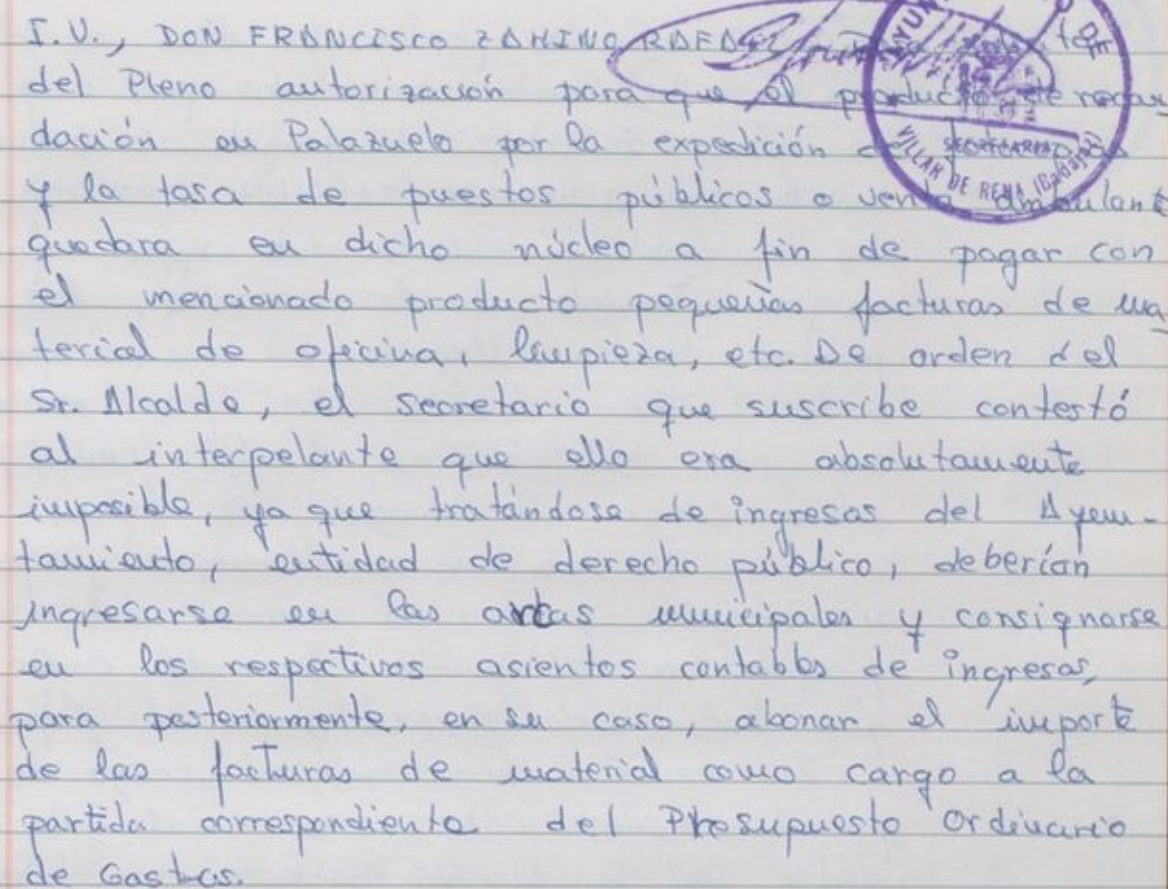 I.U., DON FRANCISCO ZAHINO RAFAEL
del Pleno autorización para que el producto de recau-
dación en Palazuelo por la expedición
y la tasa de puestos públicos o venta ambulante
quedara en dicho núcleo a fin de pagar con
el mencionado producto pequeñas facturas de ma-
terial de oficina, limpieza, etc. De orden del
Sr. Alcalde, el secretario que suscribe contestó
al interpelante que ello era absolutamente
imposible, ya que tratándose de ingresos del Ayun-
tamiento, entidad de derecho público, deberían
ingresarse en las arcas municipales y consignarse
en los respectivos asientos contables de ingresos,
para posteriormente, en su caso, abonar el importe
de las facturas de material como cargo a la
partida correspondiente del Presupuesto Ordinario
de Gastos.
AYUNTAMIENTO DE
SECRETARIA
VILLAR DE RENA (Badajoz)